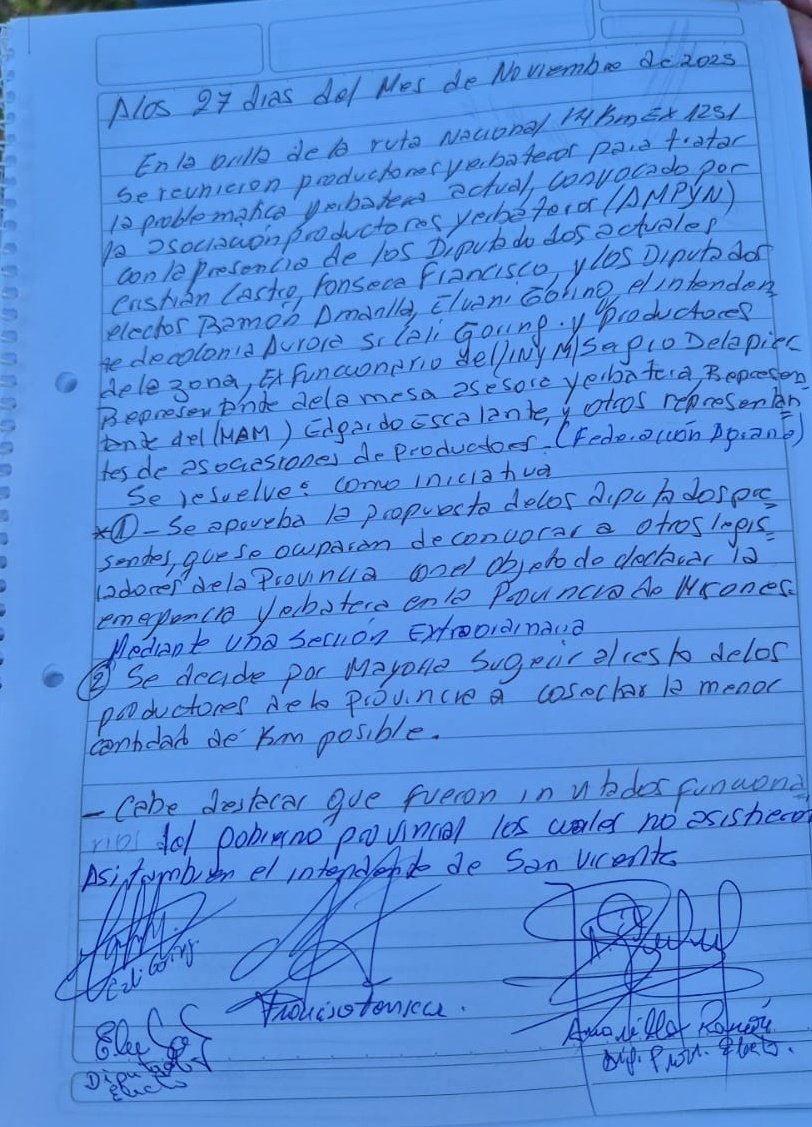 Alos 27 dias del Mes de Noviembre de 2025
En la orilla de la ruta Nacional 14 Km Ex 1251
se reunieron productores yerbateros para tratar
la problematica yerbatera actual, convocado por
la asociación productores yerbateros (AMPYN)
con la presencia de los Diputado dos actuales
Cristhian Castro, Fonseca Francisco, y los Diputados
electos Ramón Amarilla, Elvani Goring, el intenden
te de colonia Aurora Sr Cali Goring. y productores
de la zona, Ex funcionario del (INYM) Sergio Delapier
Representante dela mesa asesora yerbatera, Represen
tante del (MAM) Edgardo Escalante, y otros representan
tes de asociasiones de productores. (Federación Agraria)
Se resuelve: como iniciativa
*① - Se aprueba la propuesta delos diputados pre
sentes, que se ocuparan de convocar a otros legis
ladores dela Provincia con el objeto de declarar la
emergencia yerbatera en la Provincia de Misiones.
Mediante una Seción Extraordinaria
② Se decide por Mayoria Sugerir al resto delos
productores de la Provincia a cosechar la menor
cantidad de Km posible.
- Cabe destacar que fueron invitados funciona
rios del gobierno provincial los cuales no asistieron
Asi tambien el intendente de San Vicente
Cali Goring.
Francisco Fonseca.
Diputado
Electo
Amarilla Ramón
Dip. Prov. Electo.